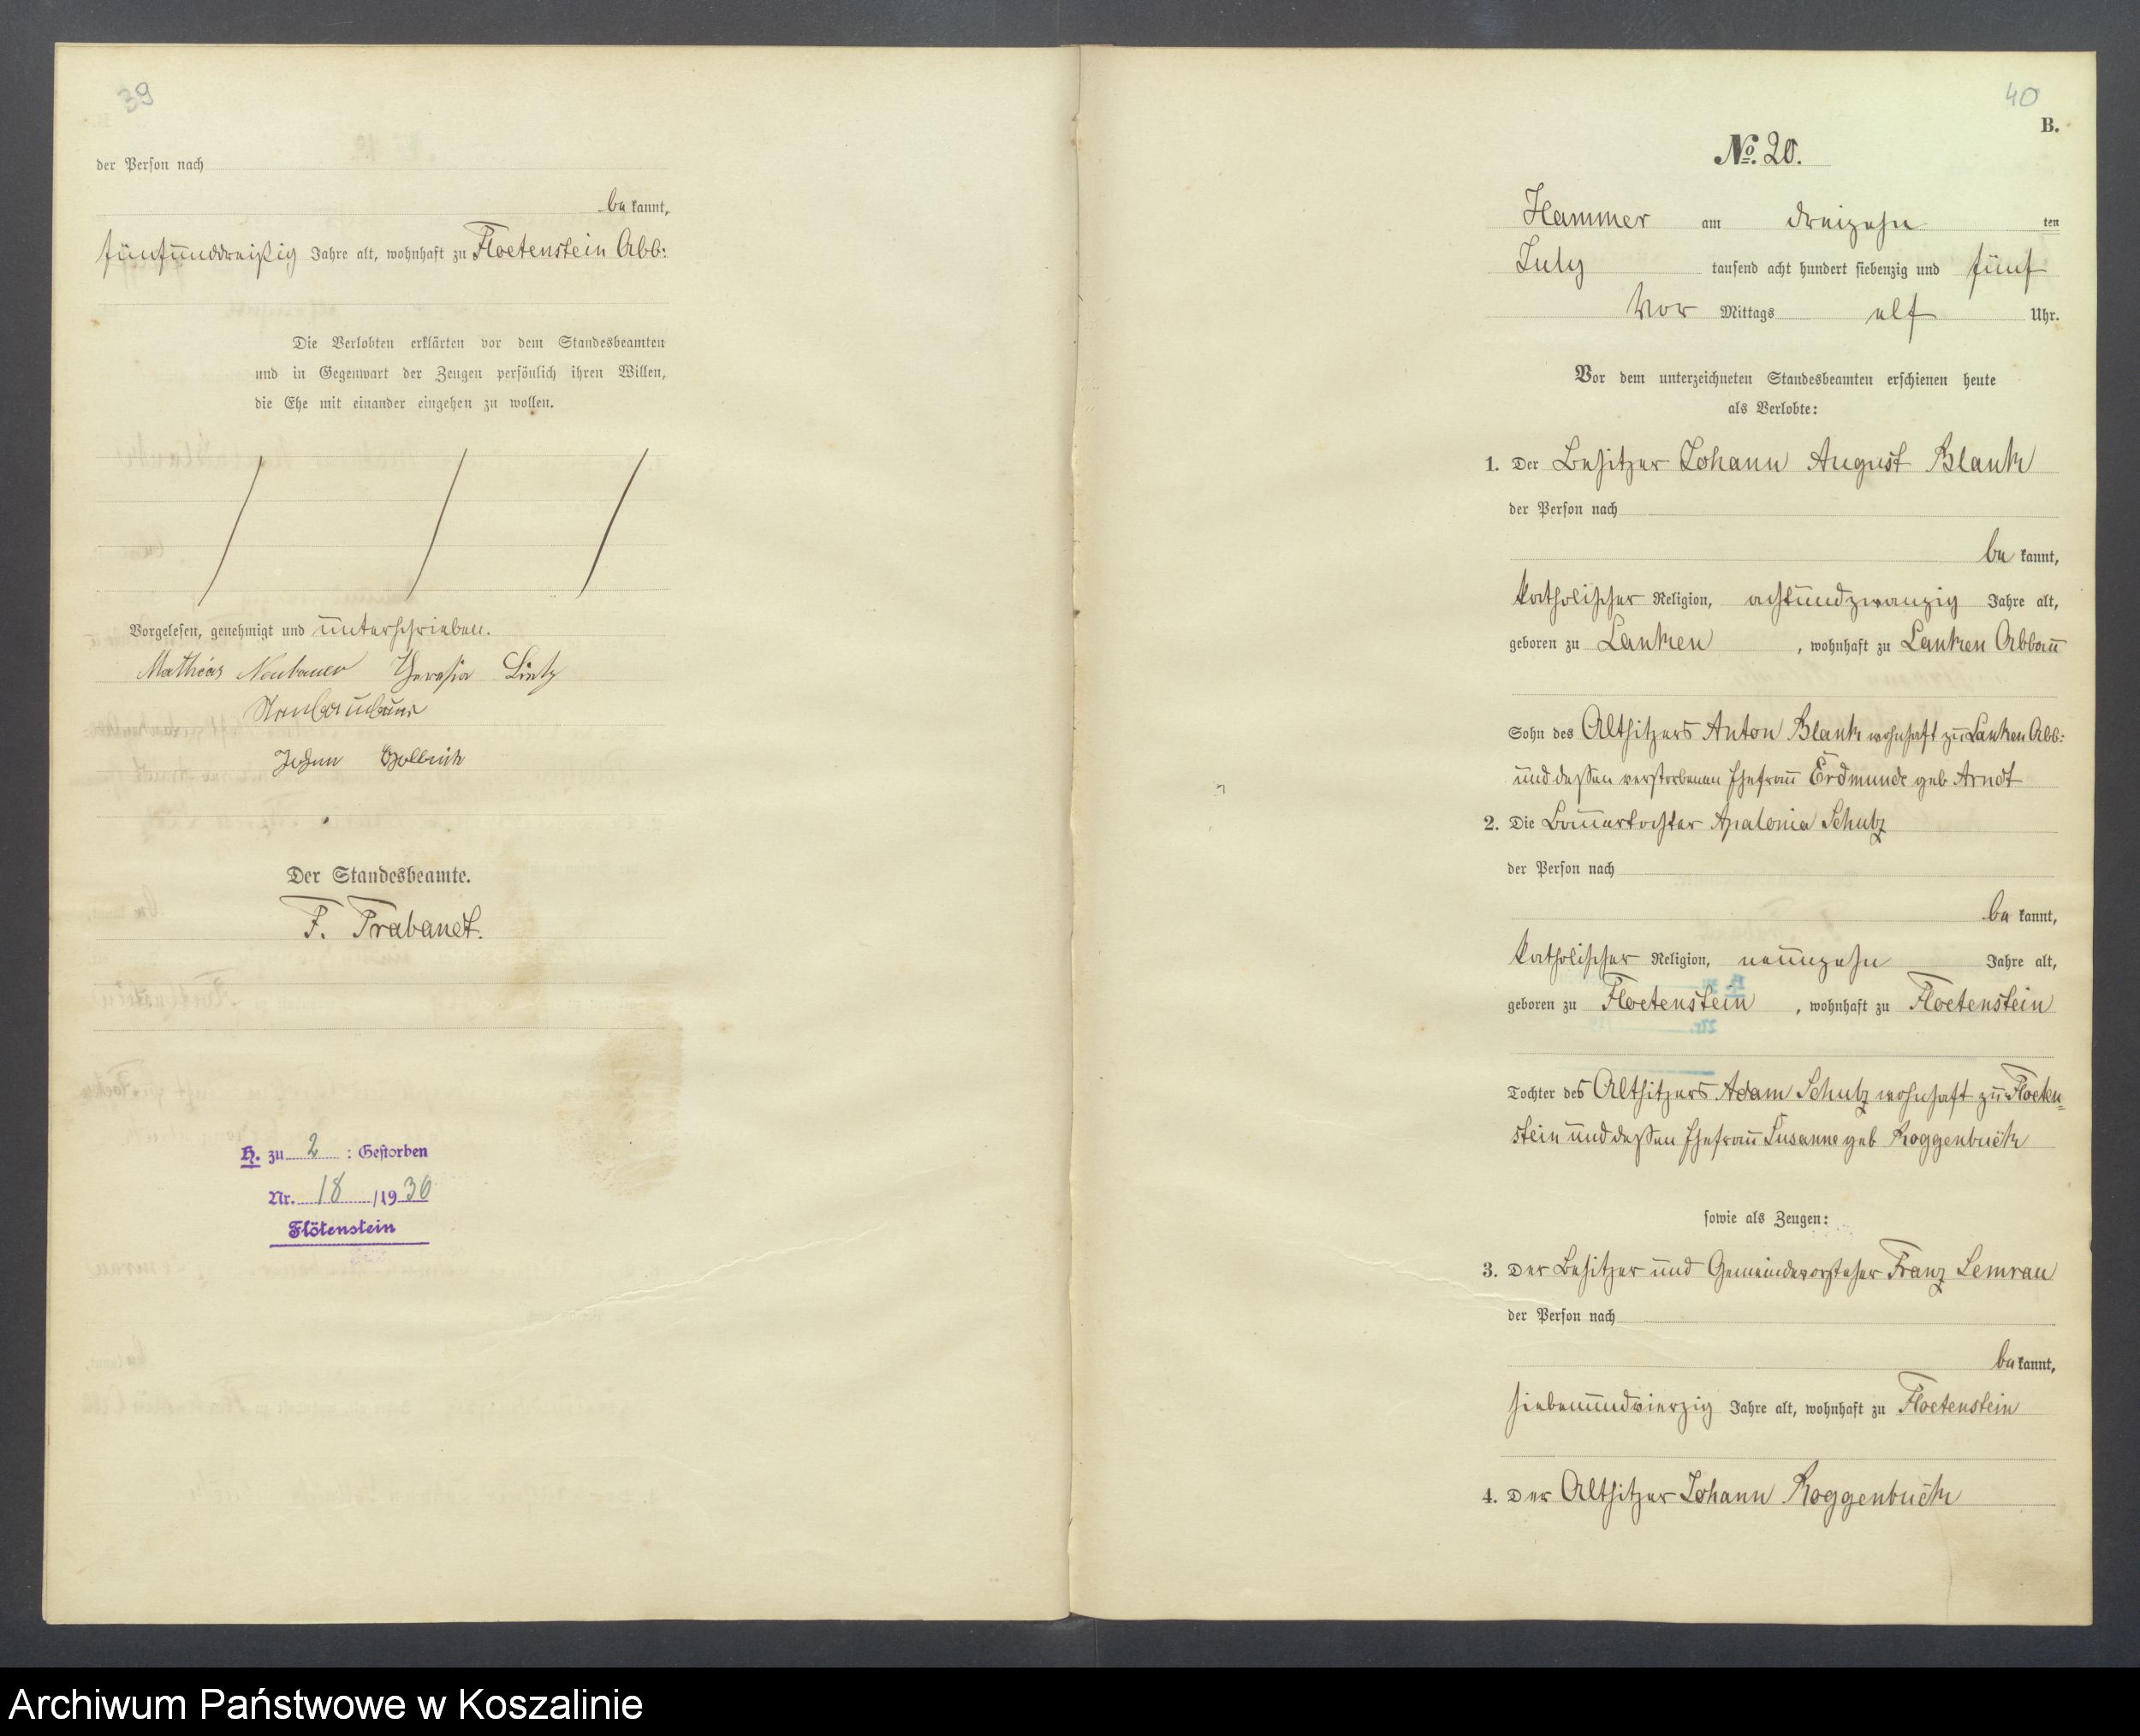 39
der Person nach
be kannt,
fünfunddreißig Jahre alt, wohnhaft zu Floetenstein Abb:
Die Verlobten erklärten vor dem Standesbeamten
und in Gegenwart der Zeugen persönlich ihren Willen,
die Ehe mit einander eingehen zu wollen.
Vorgelesen, genehmigt und unterschrieben.
Mathias Neubauer Theresia Lietz
Johann
Der Standesbeamte.
F. Trabandt.
H. zu 2 : Gestorben
Nr. 18 /1930
Flötenstein
40
B.
No. 20.
Hammer am dreizehn ten
July tausend acht hundert siebenzig und fünf
Vor Mittags elf Uhr.
Vor dem unterzeichneten Standesbeamten erschienen heute
als Verlobte:
1. Der Besitzer Johann August Blank
der Person nach
be kannt,
katholischer Religion, achtundzwanzig Jahre alt,
geboren zu Lanken , wohnhaft zu Lanken Abbau
Sohn des Altsitzers Anton Blank wohnhaft zu Lanken Abb:
und dessen verstorbenen Ehefrau Erdmunde geb Arndt
2. Die Bauertochter Apalonia Schulz
der Person nach
be kannt,
katholischer Religion, neunzehn Jahre alt,
geboren zu Floetenstein , wohnhaft zu Floetenstein
Tochter des Altsitzers Adam Schulz wohnhaft zu Floeten=
stein und dessen Ehefrau Susanne geb Roggenbuck
sowie als Zeugen:
3. Der Besitzer und Gemeindevorsteher Franz Semrau
der Person nach
be kannt,
siebenundvierzig Jahre alt, wohnhaft zu Floetenstein
4. Der Altsitzer Johann Roggenbuck
Archiwum Państwowe w Koszalinie